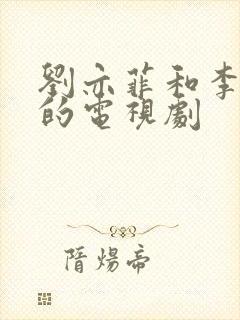 劉亦菲和李
的電視劇
隋煬帝